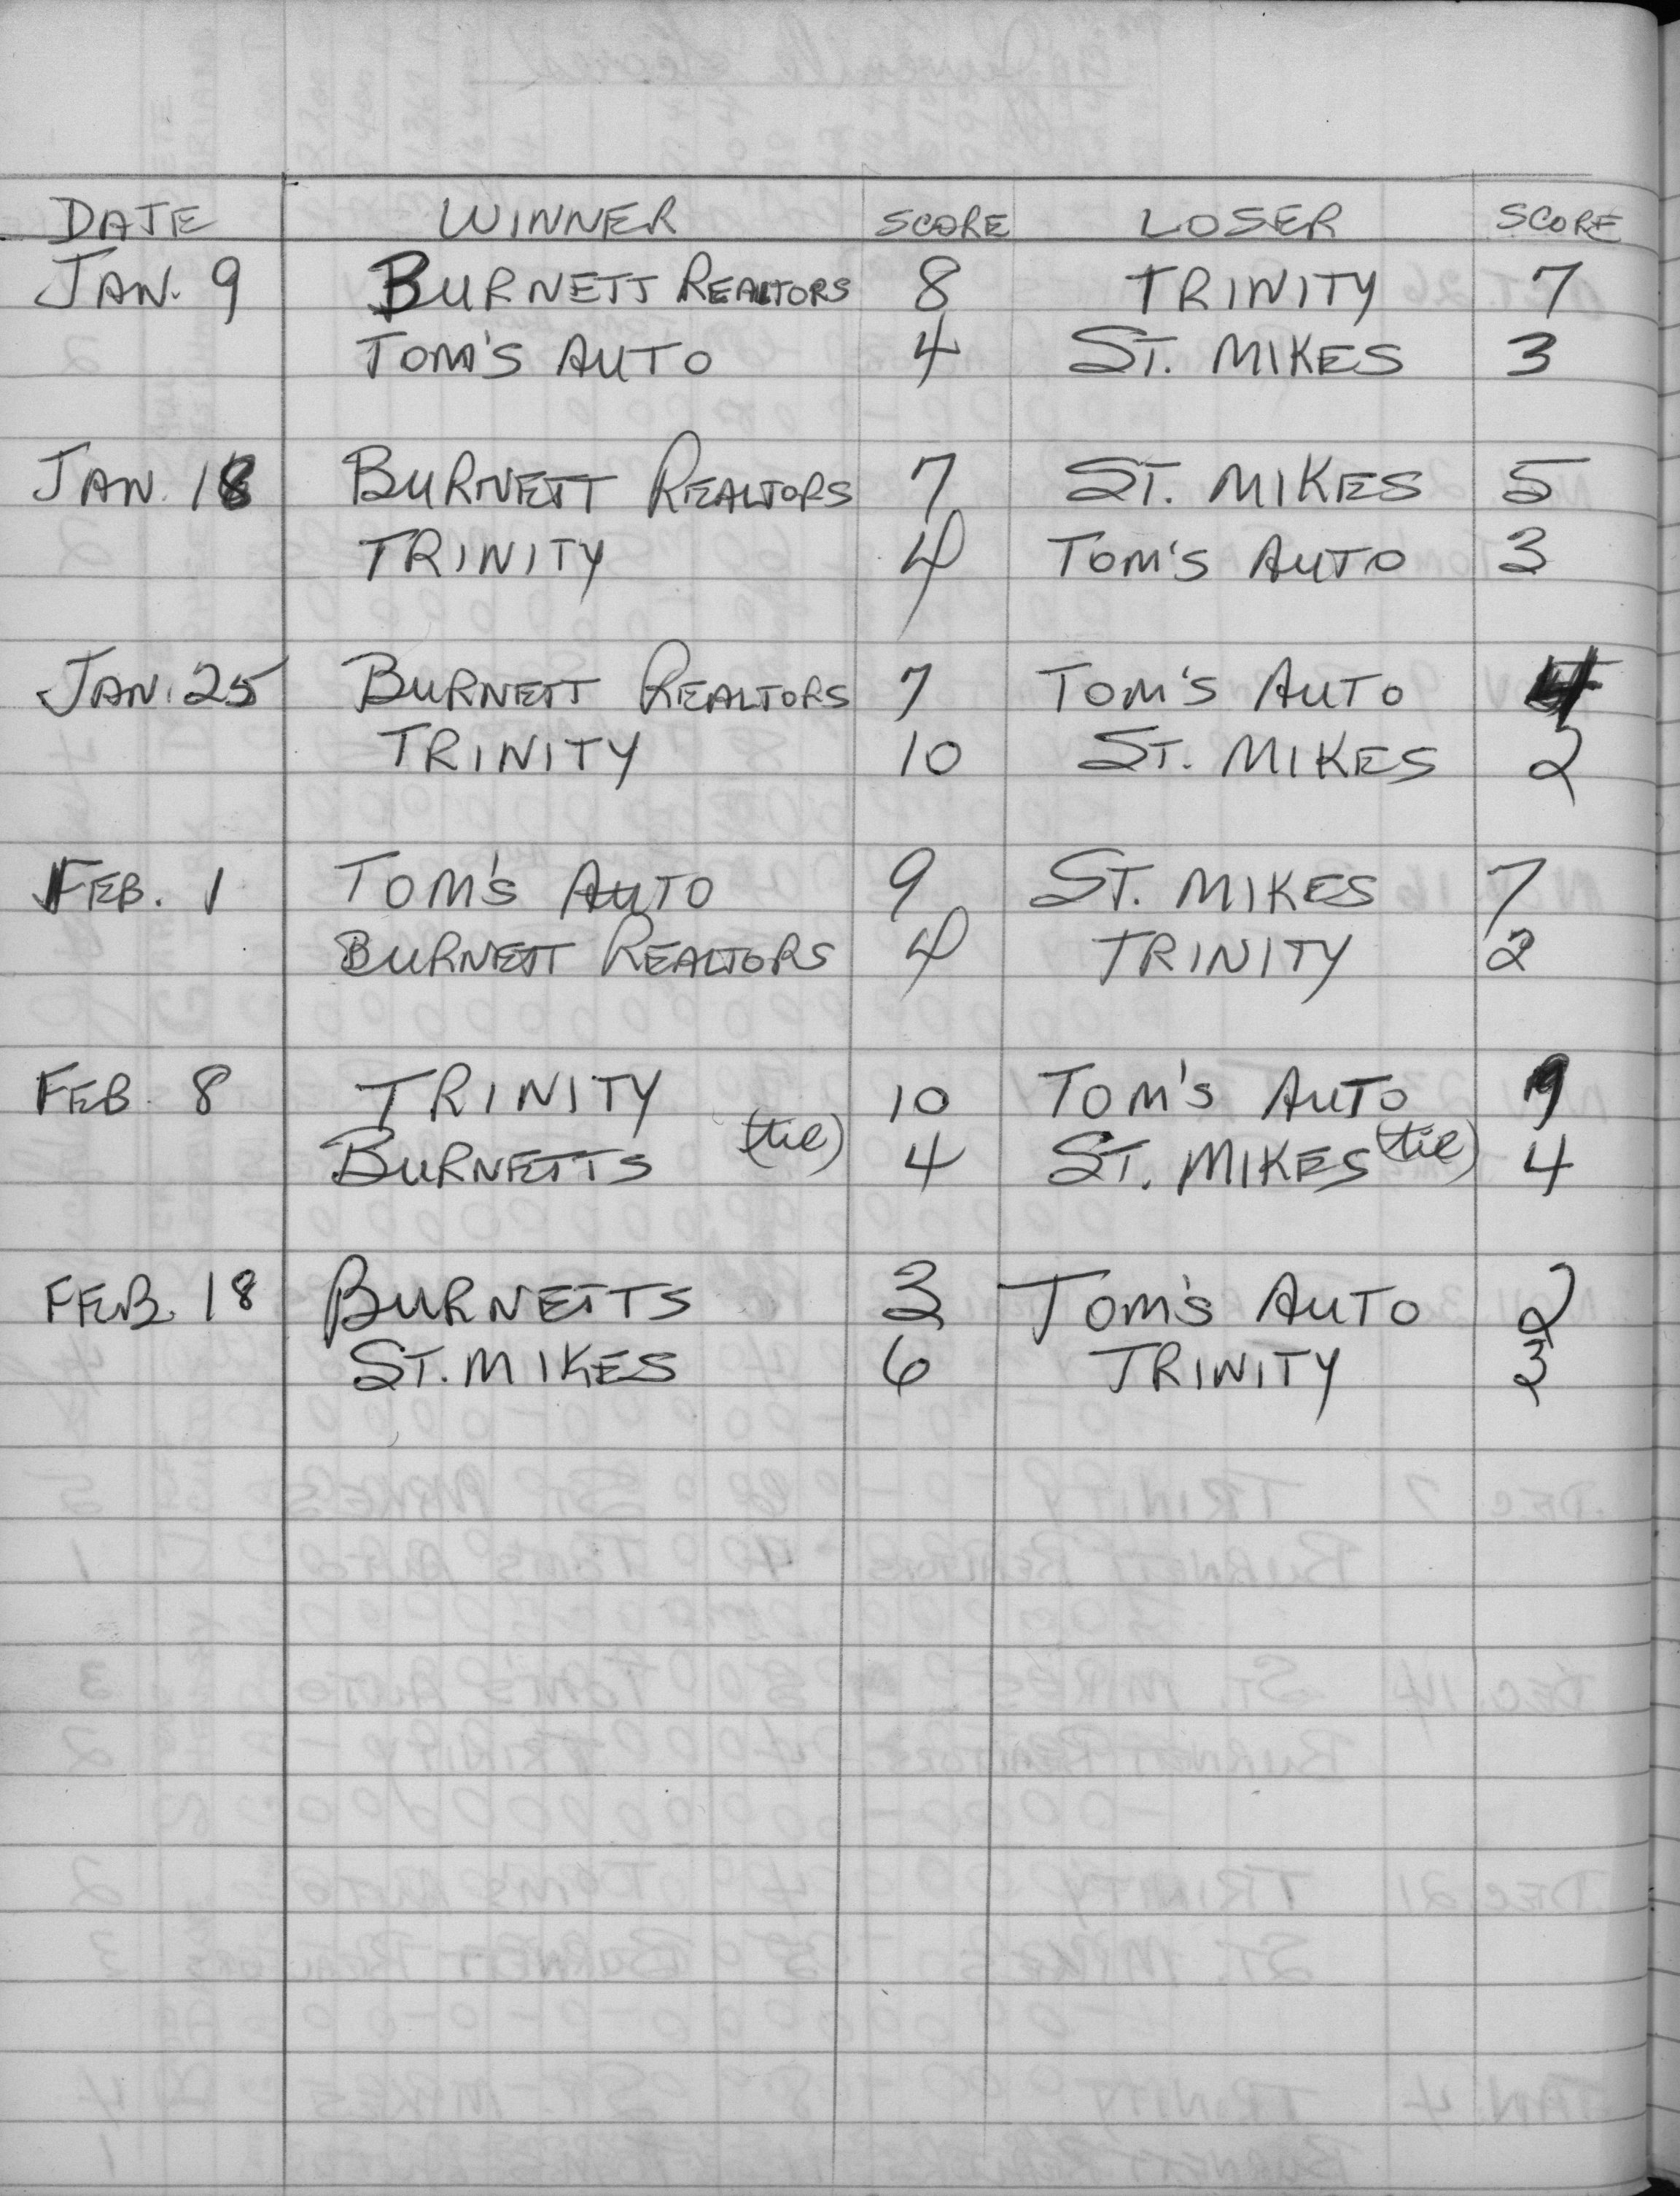 DATE WINNER SCORE LOSER SCORE
JAN. 9 BURNETT REALTORS 8 TRINITY 7
TOM'S AUTO 4 ST. MIKES 3
JAN. 18 BURNETT REALTORS 7 ST. MIKES 5
TRINITY 4 TOM'S AUTO 3
JAN. 25 BURNETT REALTORS 7 TOM'S AUTO 4
TRINITY 10 ST. MIKES 2
FEB. 1 TOM'S AUTO 9 ST. MIKES 7
BURNETT REALTORS 4 TRINITY 2
FEB. 8 TRINITY 10 TOM'S AUTO 9
BURNETTS (tie) 4 ST. MIKES (tie) 4
FEB. 18 BURNETTS 3 TOM'S AUTO 2
ST. MIKES 6 TRINITY 3